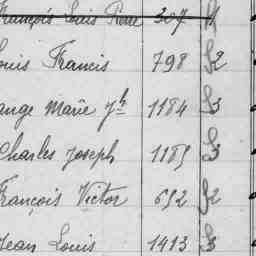 François Louis Pierre 307
Louis Francis 798 S2
ange Marie Jh 1184 S3
Charles Joseph 1185 S3
François Victor 692 S2
Jean Louis 1413 S3